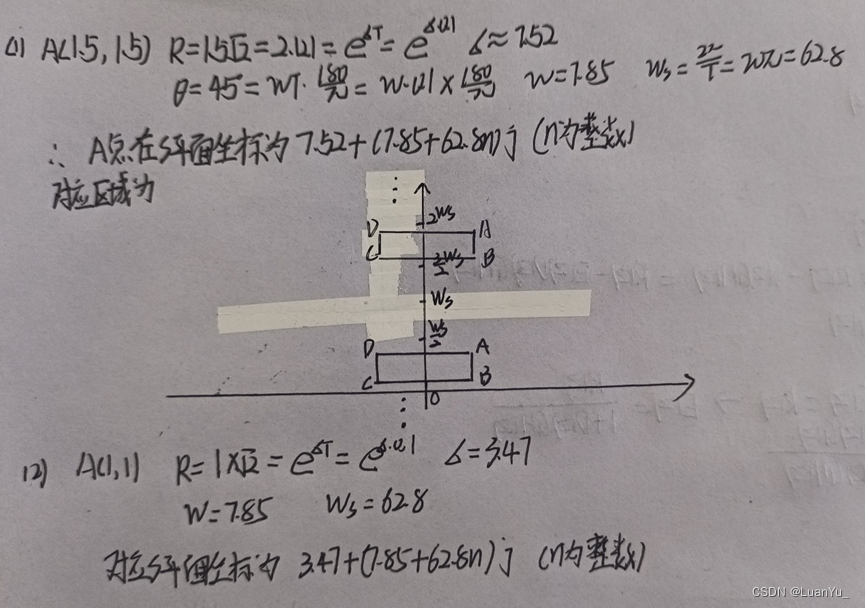 (1) A(1.5, 1.5) R=1.5√2=2.121=e^{σT}=e^{σ·0.1} σ≈7.52
θ=45°=WT·180/π=W·0.1×180/π W=7.85 Ws=2π/T=20π=62.8
∴ A点在S平面坐标为 7.52+(7.85+62.8n)j (n为整数)
对应区域为
⋮
2Ws
D A
C 3/2Ws B
Ws
Ws/2
D A
C B
0
⋮
(2) A(1,1) R=1×√2=e^{σT}=e^{σ·0.1} σ=3.47
W=7.85 Ws=62.8
对应S平面坐标为 3.47+(7.85+62.8n)j (n为整数)
CSDN @LuanYu_